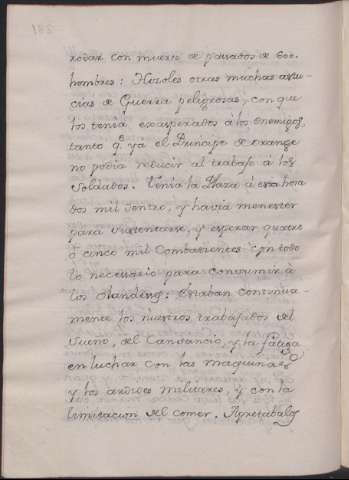 rodar con muerte de pasados de 800
hombres: Hizoles otras muchas astu-
cias de Guerra peligrosas, con que
los tenia exasperados á los enemigos,
tanto q.e ya el Principe de orange
no podia reducir al trabajo á los
Soldados. Tenia la Plaza á esta hora
dos mil dentro, y havia menester
para sustentarse, y esperar quatro
ó cinco mil Combatientes con todo
lo necessario para consumir á
los olandeses: Estaban continua-
mente los nuestros trabajados del
sueno, del Cansancio, y la fatiga
en luchar con las maquinas
y los ardides militares, y con la
limitacion del comer. Apretabalos